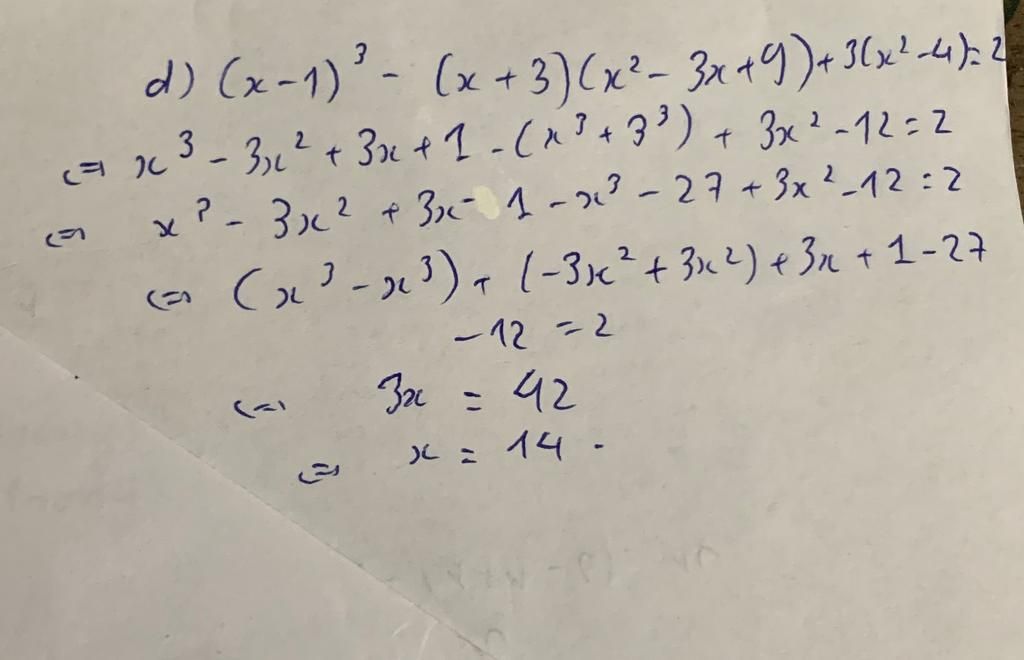 d) (x-1)³ - (x+3)(x² - 3x+9)+3(x²-4)=2
⇔ x³ - 3x² + 3x + 1 - (x³ + 3³) + 3x² - 12 = 2
⇔ x³ - 3x² + 3x - 1 - x³ - 27 + 3x² - 12 = 2
⇔ (x³ - x³) + (-3x² + 3x²) + 3x + 1 - 27
- 12 = 2
⇔ 3x = 42
⇔ x = 14 .